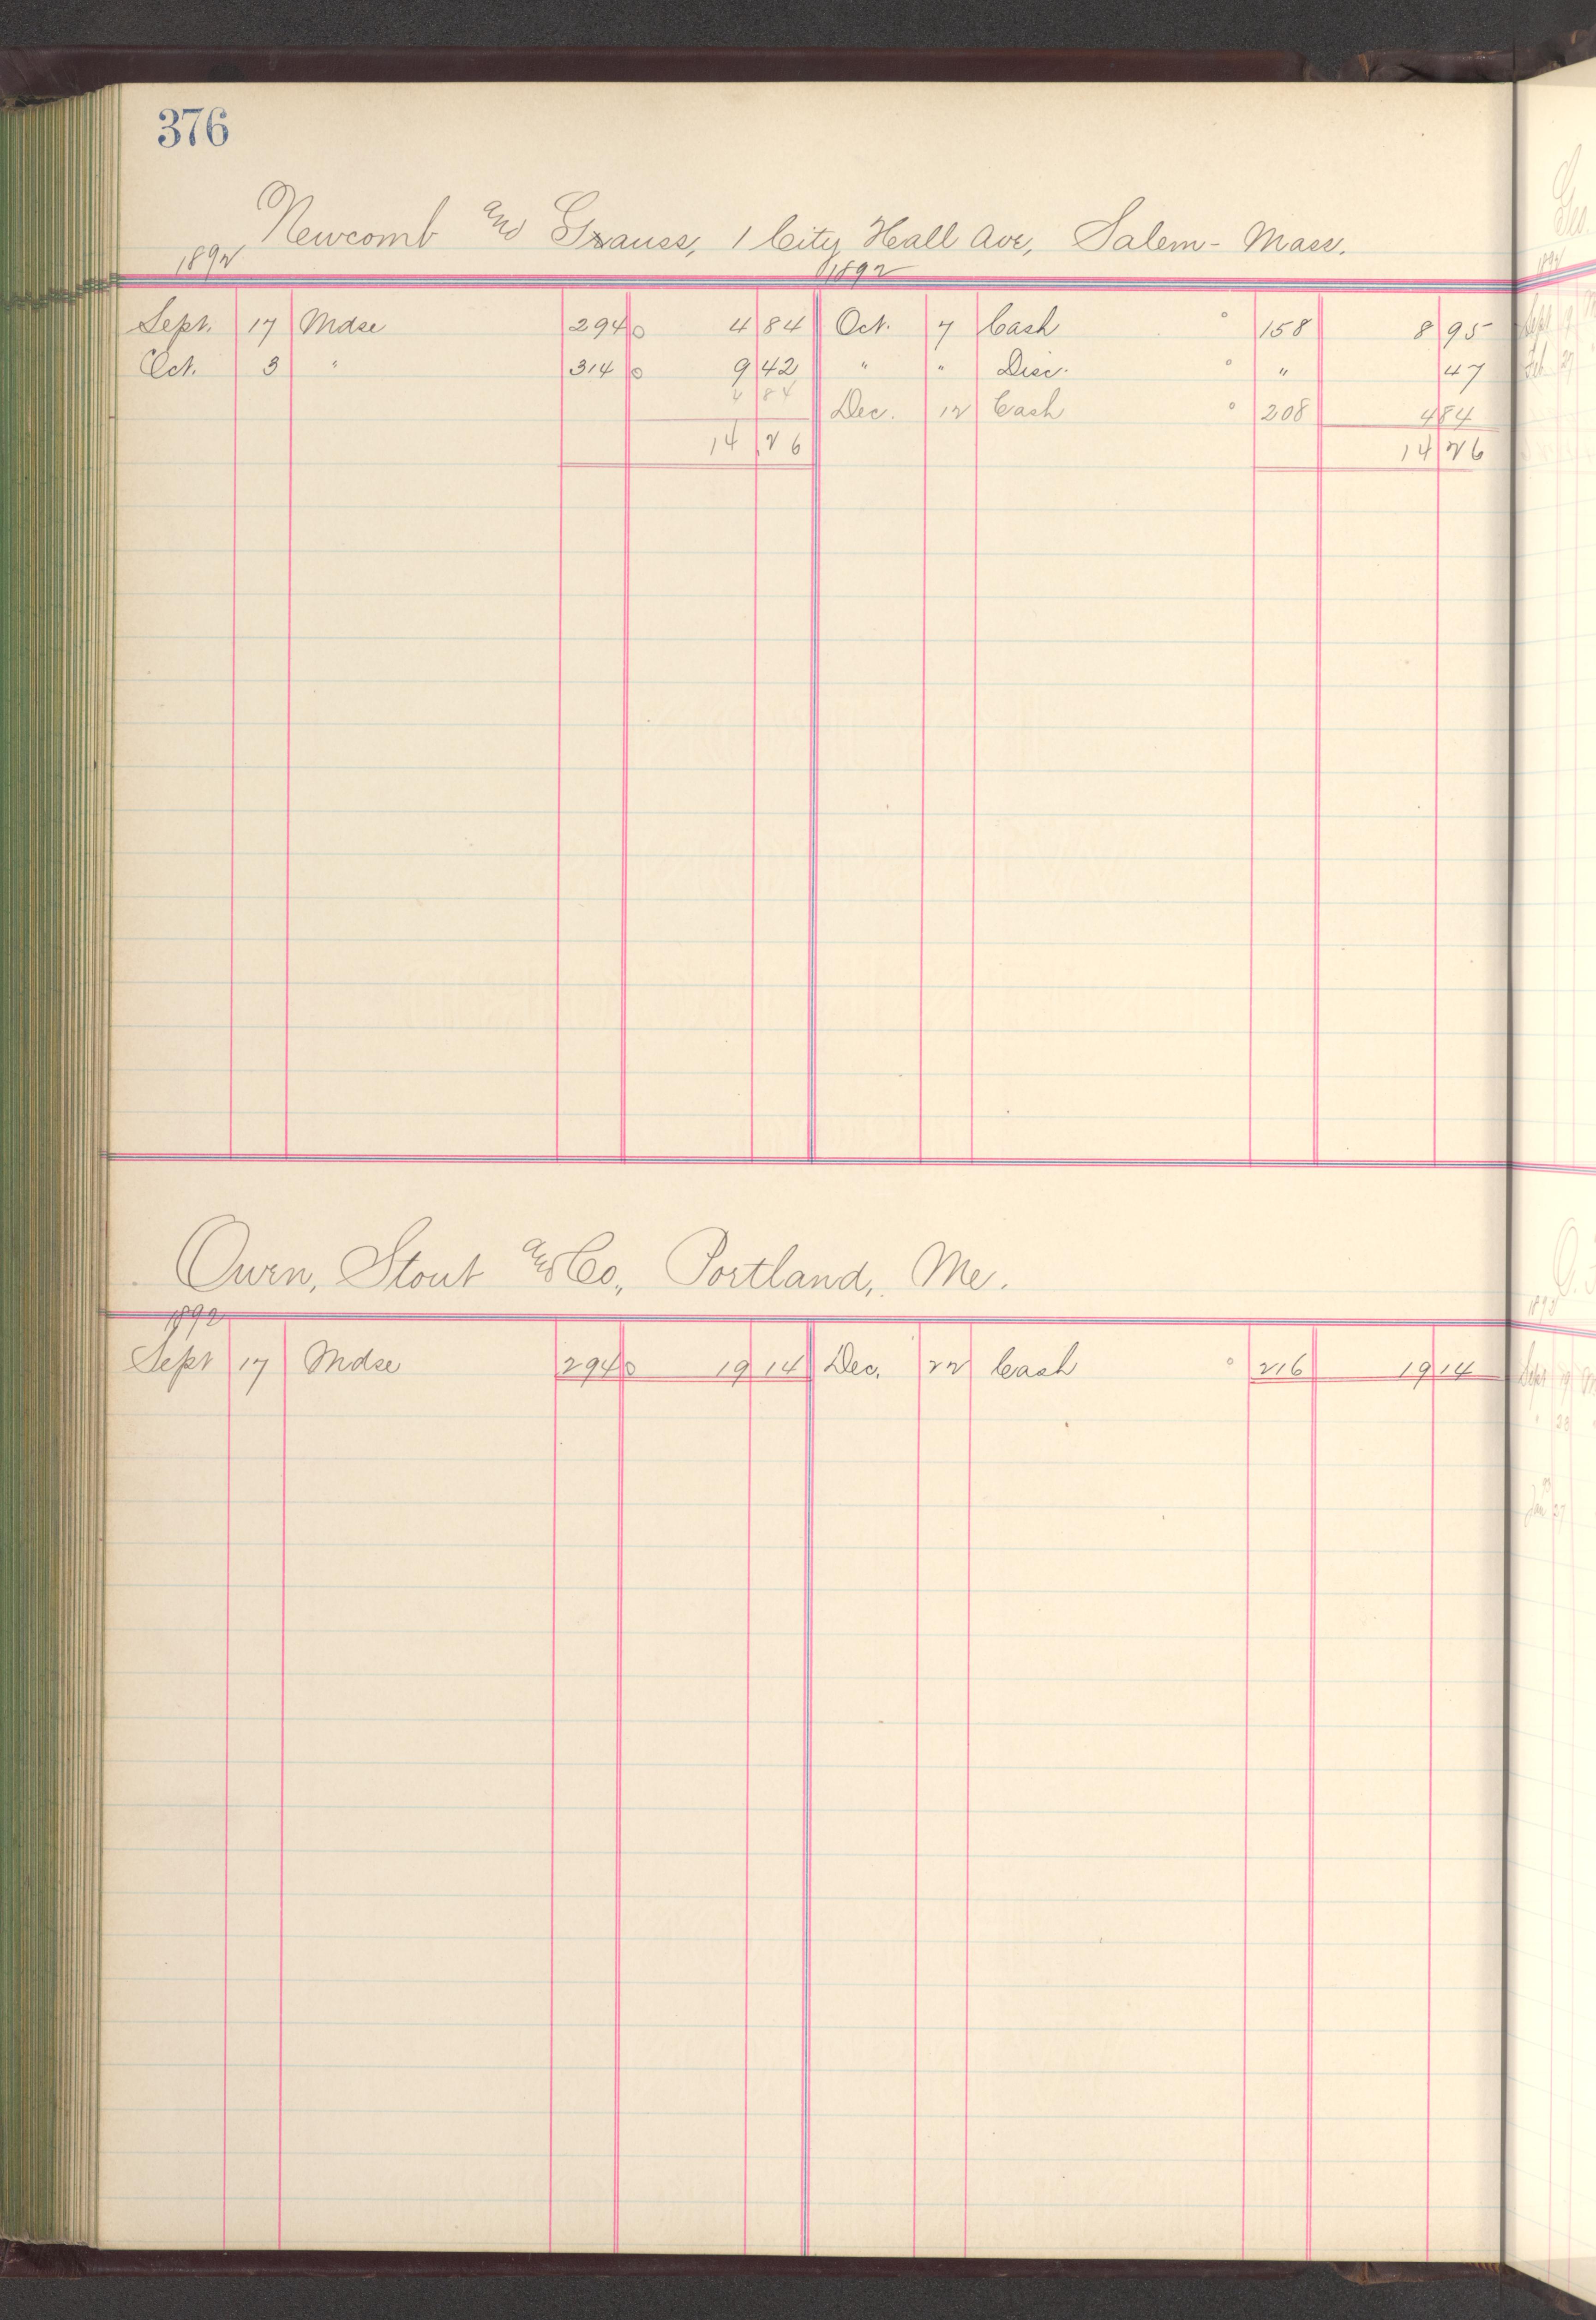 376
Newcomb and Strauss, 1 City Hall Ave, Salem - Mass.
1892 1892
Sept. 17 Mdse 294 0 4 84 Oct. 7 Cash 158 8 95
Oct. 3 " 314 0 9 42 " " Disc. " 47
4 84 Dec. 12 Cash 208 4 84
14 26 14 26
Owen, Stout and Co., Portland, Me.
1892
Sept 17 Mdse 294 0 19 14 Dec. 22 Cash 216 19 14